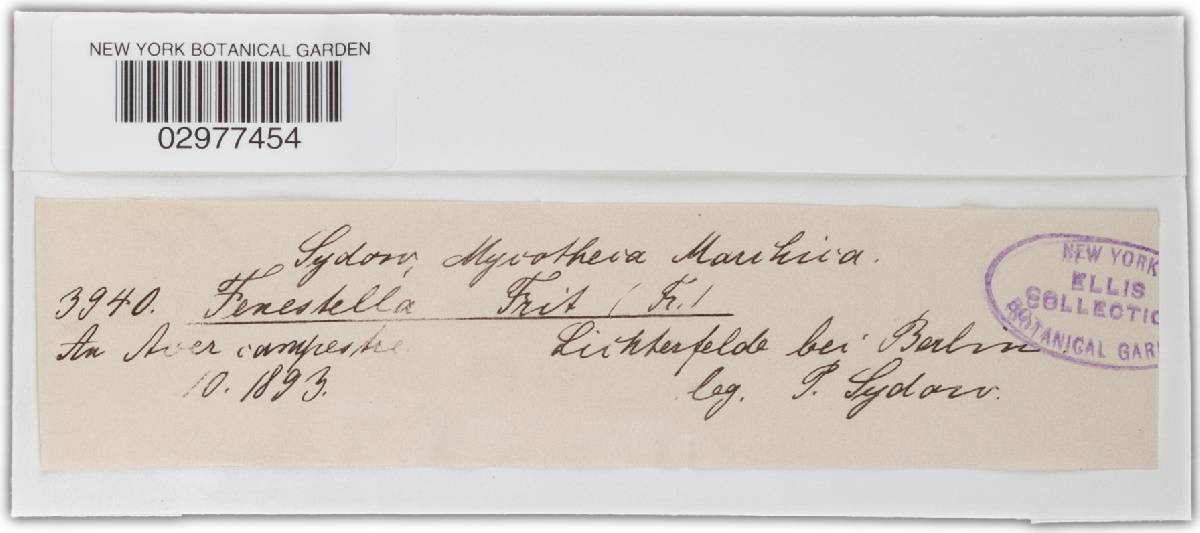 NEW YORK BOTANICAL GARDEN
02977454
Sydow, Mycotheca Marchica.
3940. Fenestella Frit (Fr.)
An Acer campestre
10. 1893.
Lichterfelde bei Berlin
leg. P. Sydow.
NEW YORK
ELLIS
COLLECTIO
BOTANICAL GAR